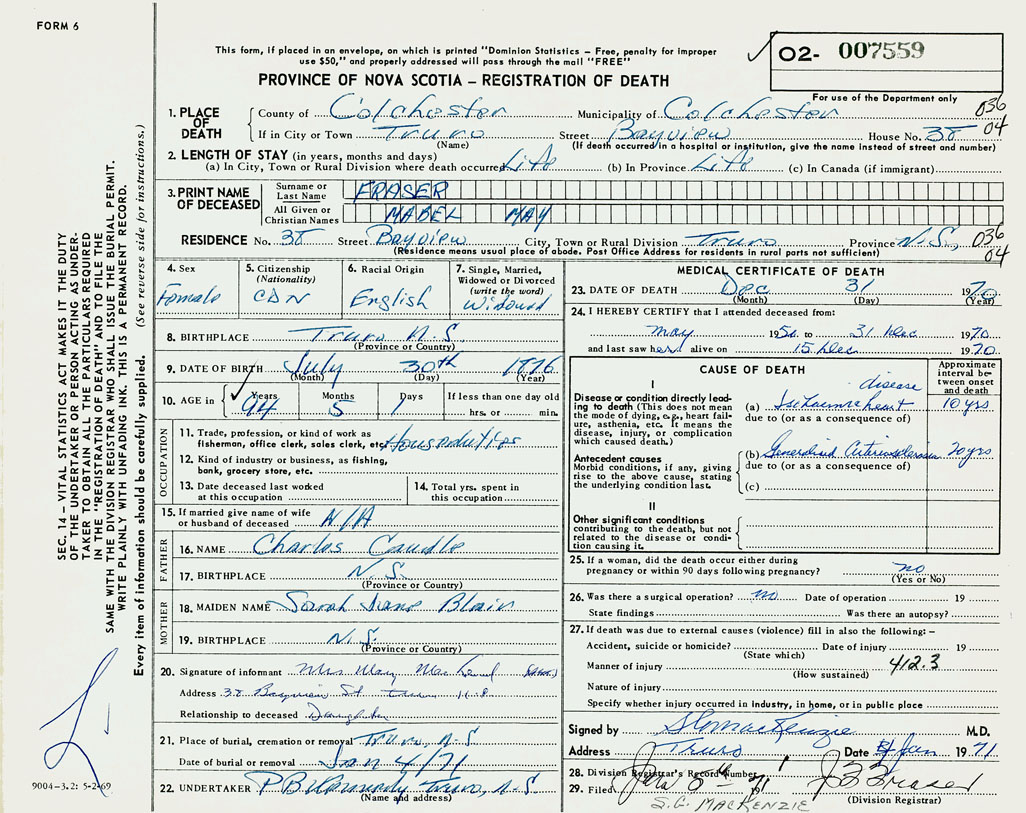 FORM 6
This form, if placed in an envelope, on which is printed "Dominion Statistics – Free, penalty for improper
use $50," and properly addressed will pass through the mail "FREE"
PROVINCE OF NOVA SCOTIA – REGISTRATION OF DEATH
02- 007559
For use of the Department only
036
04
1. PLACE OF DEATH
County of Colchester Municipality of Colchester
If in City or Town Truro Street Bayview House No. 38
(Name) (If death occurred in a hospital or institution, give the name instead of street and number)
2. LENGTH OF STAY (in years, months and days)
(a) In City, Town or Rural Division where death occurred Life (b) In Province Life (c) In Canada (if immigrant)
3. PRINT NAME OF DECEASED
Surname or Last Name FRASER
All Given or Christian Names MABEL MAY
RESIDENCE No. 38 Street Bayview City, Town or Rural Division Truro Province N.S. 036
04
(Residence means usual place of abode. Post Office Address for residents in rural parts not sufficient)
4. Sex
Female
5. Citizenship
(Nationality)
CDN
6. Racial Origin
English
7. Single, Married,
Widowed or Divorced
(write the word)
Widowed
8. BIRTHPLACE Truro N.S
(Province or Country)
9. DATE OF BIRTH July 30th 1876
(Month) (Day) (Year)
10. AGE in Years Months Days If less than one day old
94 5 1 hrs. or min.
OCCUPATION
11. Trade, profession, or kind of work as
fisherman, office clerk, sales clerk, etc. Houseduties
12. Kind of industry or business, as fishing,
bank, grocery store, etc.
13. Date deceased last worked
at this occupation
14. Total yrs. spent in
this occupation
15. If married give name of wife
or husband of deceased N/A
FATHER
16. NAME Charles Caudle
17. BIRTHPLACE N.S.
(Province or Country)
MOTHER
18. MAIDEN NAME Sarah Jane Blair
19. BIRTHPLACE N.S.
(Province or Country)
20. Signature of informant Mrs Mary
Address 38 Bayview St Truro N.S
Relationship to deceased Daughter
21. Place of burial, cremation or removal Truro, N.S
Date of burial or removal Jan 4/71
22. UNDERTAKER Truro, N.S.
(Name and address)
MEDICAL CERTIFICATE OF DEATH
23. DATE OF DEATH Dec 31 1970
(Month) (Day) (Year)
24. I HEREBY CERTIFY that I attended deceased from:
May 1950 to 31 Dec 1970
and last saw her alive on 15 Dec 1970
CAUSE OF DEATH
Approximate
interval be-
tween onset
and death
I
Disease or condition directly lead-
ing to death (This does not mean
the mode of dying, e.g., heart fail-
ure, asthenia, etc. It means the
disease, injury, or complication
which caused death.)
disease
(a) Ischaemic heart 10 yrs
due to (or as a consequence of)
Antecedent causes
Morbid conditions, if any, giving
rise to the above cause, stating
the underlying condition last.
(b) Generalized Arteriosclerosis 20 yrs
due to (or as a consequence of)
(c)
II
Other significant conditions
contributing to the death, but not
related to the disease or condi-
tion causing it.
25. If a woman, did the death occur either during
pregnancy or within 90 days following pregnancy? no
(Yes or No)
26. Was there a surgical operation? no Date of operation 19
State findings Was there an autopsy?
27. If death was due to external causes (violence) fill in also the following: –
Accident, suicide or homicide? Date of injury 19
(State which)
Manner of injury 412.3
(How sustained)
Nature of injury
Specify whether injury occurred in industry, in home, or in public place
Signed by SGMacKenzie M.D.
Address Truro Date Jan 1971
28. Division Registrar's Record Number 1
29. Filed Jan 1971
(Division Registrar)
S.G. MACKENZIE
SEC. 14 – VITAL STATISTICS ACT MAKES IT THE DUTY
OF THE UNDERTAKER OR PERSON ACTING AS UNDER-
TAKER TO OBTAIN ALL THE PARTICULARS REQUIRED
IN THE "REGISTRATION OF DEATH" AND TO FILE THE
SAME WITH THE DIVISION REGISTRAR WHO SHALL ISSUE THE BURIAL PERMIT.
WRITE PLAINLY WITH UNFADING INK. THIS IS A PERMANENT RECORD.
Every item of information should be carefully supplied. (See reverse side for instructions.)
9004-3.2: 5-2-69